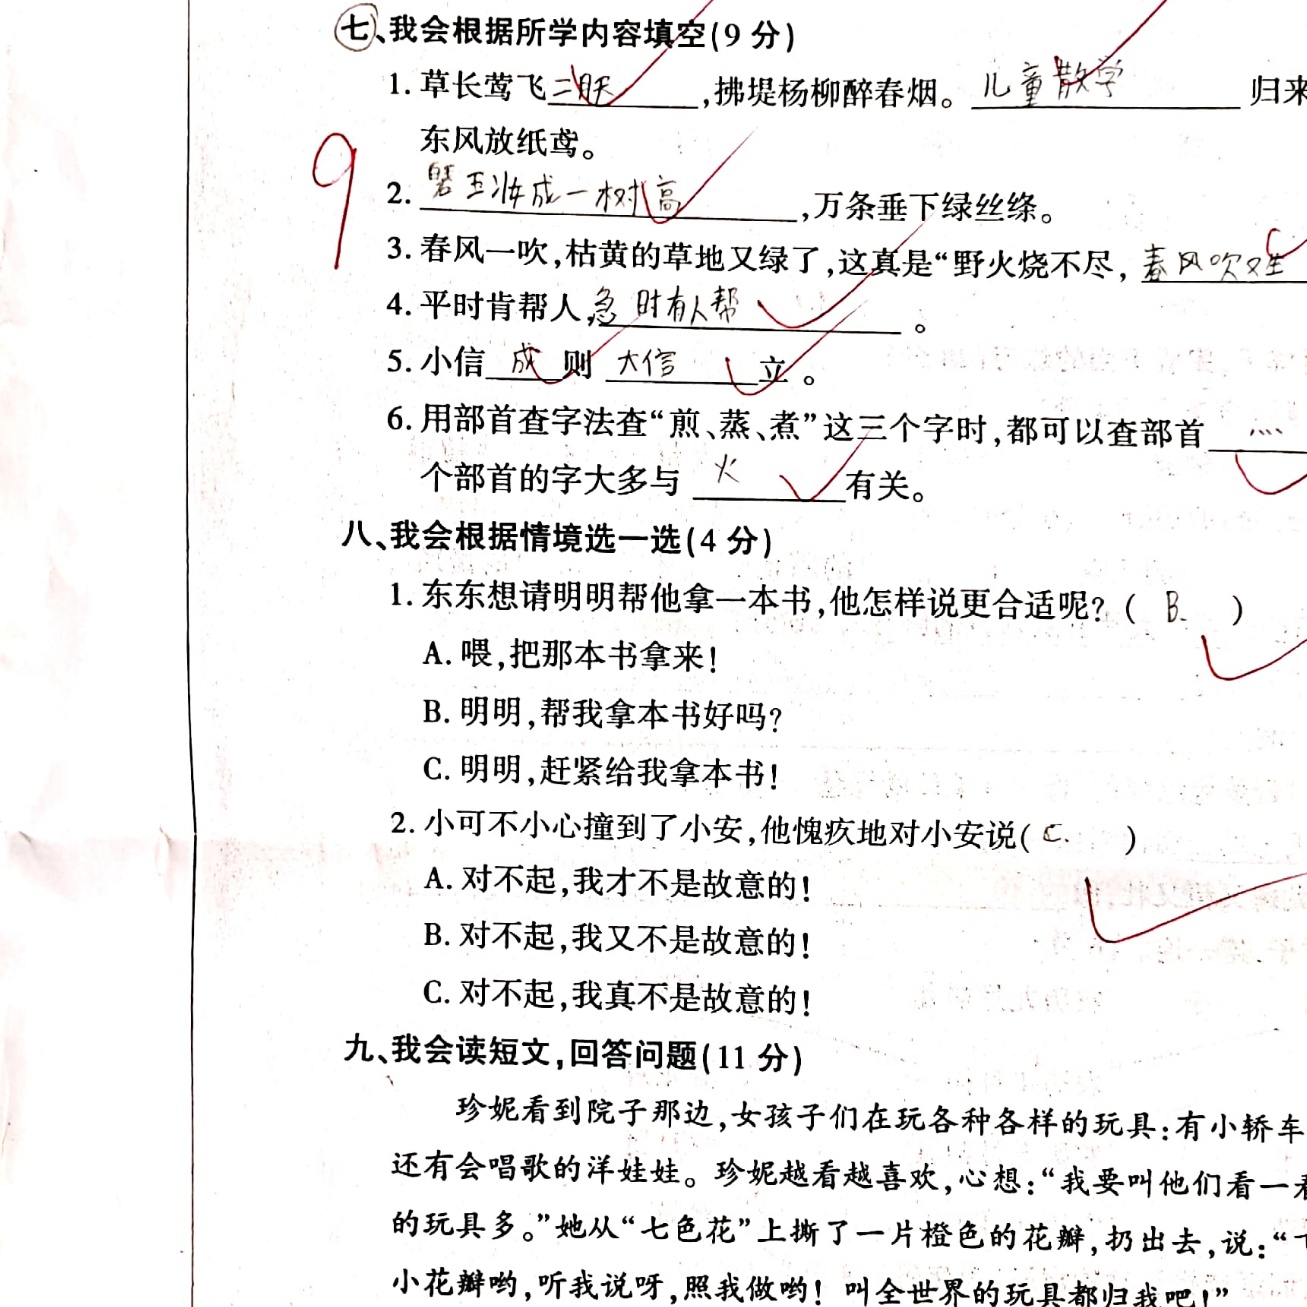 七、我会根据所学内容填空(9分)
1. 草长莺飞二月天,拂堤杨柳醉春烟。儿童散学 归来
东风放纸鸢。
9
2. 碧玉妆成一树高,万条垂下绿丝绦。
3. 春风一吹,枯黄的草地又绿了,这真是“野火烧不尽,春风吹又生
4. 平时肯帮人,急时有人帮。
5. 小信 成 则 大信 立。
6. 用部首查字法查“煎、蒸、煮”这三个字时,都可以查部首 灬
个部首的字大多与 火 有关。
八、我会根据情境选一选(4分)
1. 东东想请明明帮他拿一本书,他怎样说更合适呢?( B. )
A. 喂,把那本书拿来!
B. 明明,帮我拿本书好吗?
C. 明明,赶紧给我拿本书!
2. 小可不小心撞到了小安,他愧疚地对小安说( C. )
A. 对不起,我才不是故意的!
B. 对不起,我又不是故意的!
C. 对不起,我真不是故意的!
九、我会读短文,回答问题(11分)
珍妮看到院子那边,女孩子们在玩各种各样的玩具:有小轿车
还有会唱歌的洋娃娃。珍妮越看越喜欢,心想:“我要叫他们看一看
的玩具多。”她从“七色花”上撕了一片橙色的花瓣,扔出去,说:“
小花瓣哟,听我说呀,照我做哟!叫全世界的玩具都归我吧!”